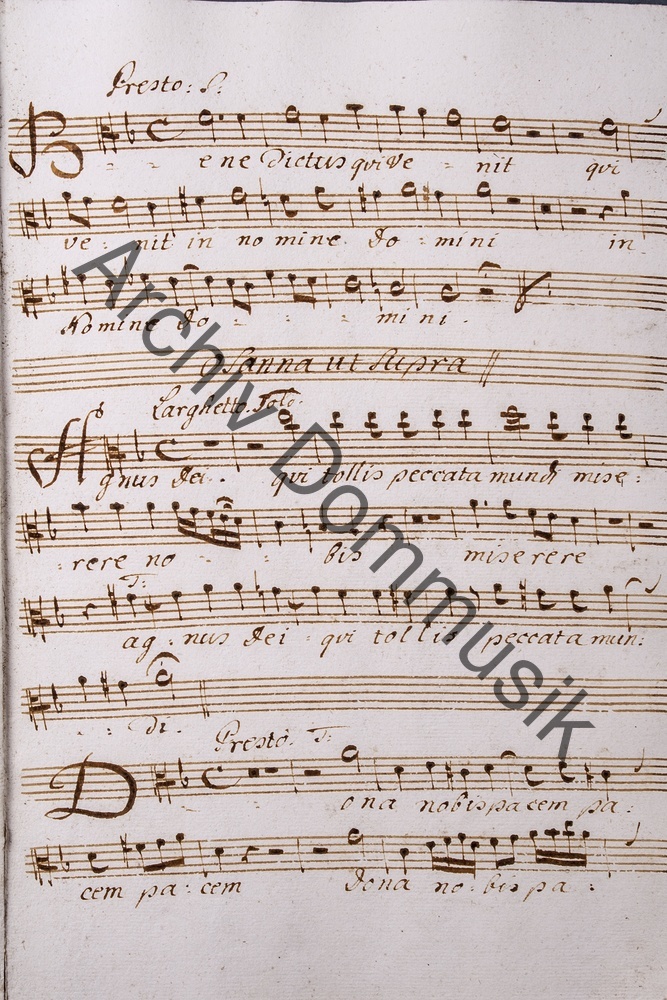 Presto: S:
B - - - ene Dictus qui Ve - nit qui
ve - nit in nomine Do - mini in
Nomine Do - - - - mini.
Osanna ut Supra
Larghetto. Solo.
Agnus Dei. qui tollis peccata mundi mise:
: rere no - - - bis miserere
T:
ag : nus Dei : qui tollis peccata mun:
- - di.
Presto. T:
Dona nobis pacem pa:
cem pa : cem dona no : bis pa :
Archiv Dommusik